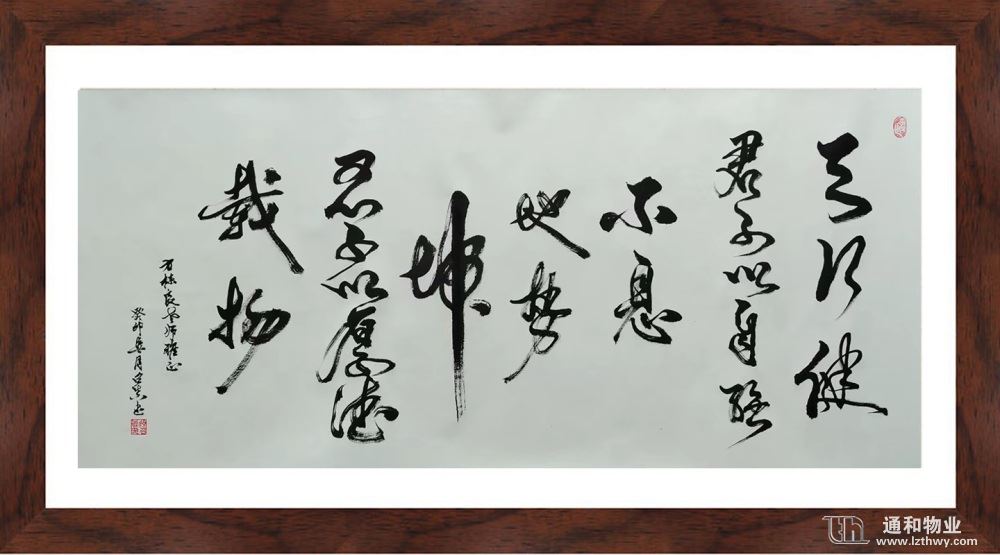 天行健
君子以自强
不息
地势
坤
君子以厚德
载物
癸卯
月
书
通和物业
www.lzthwy.com